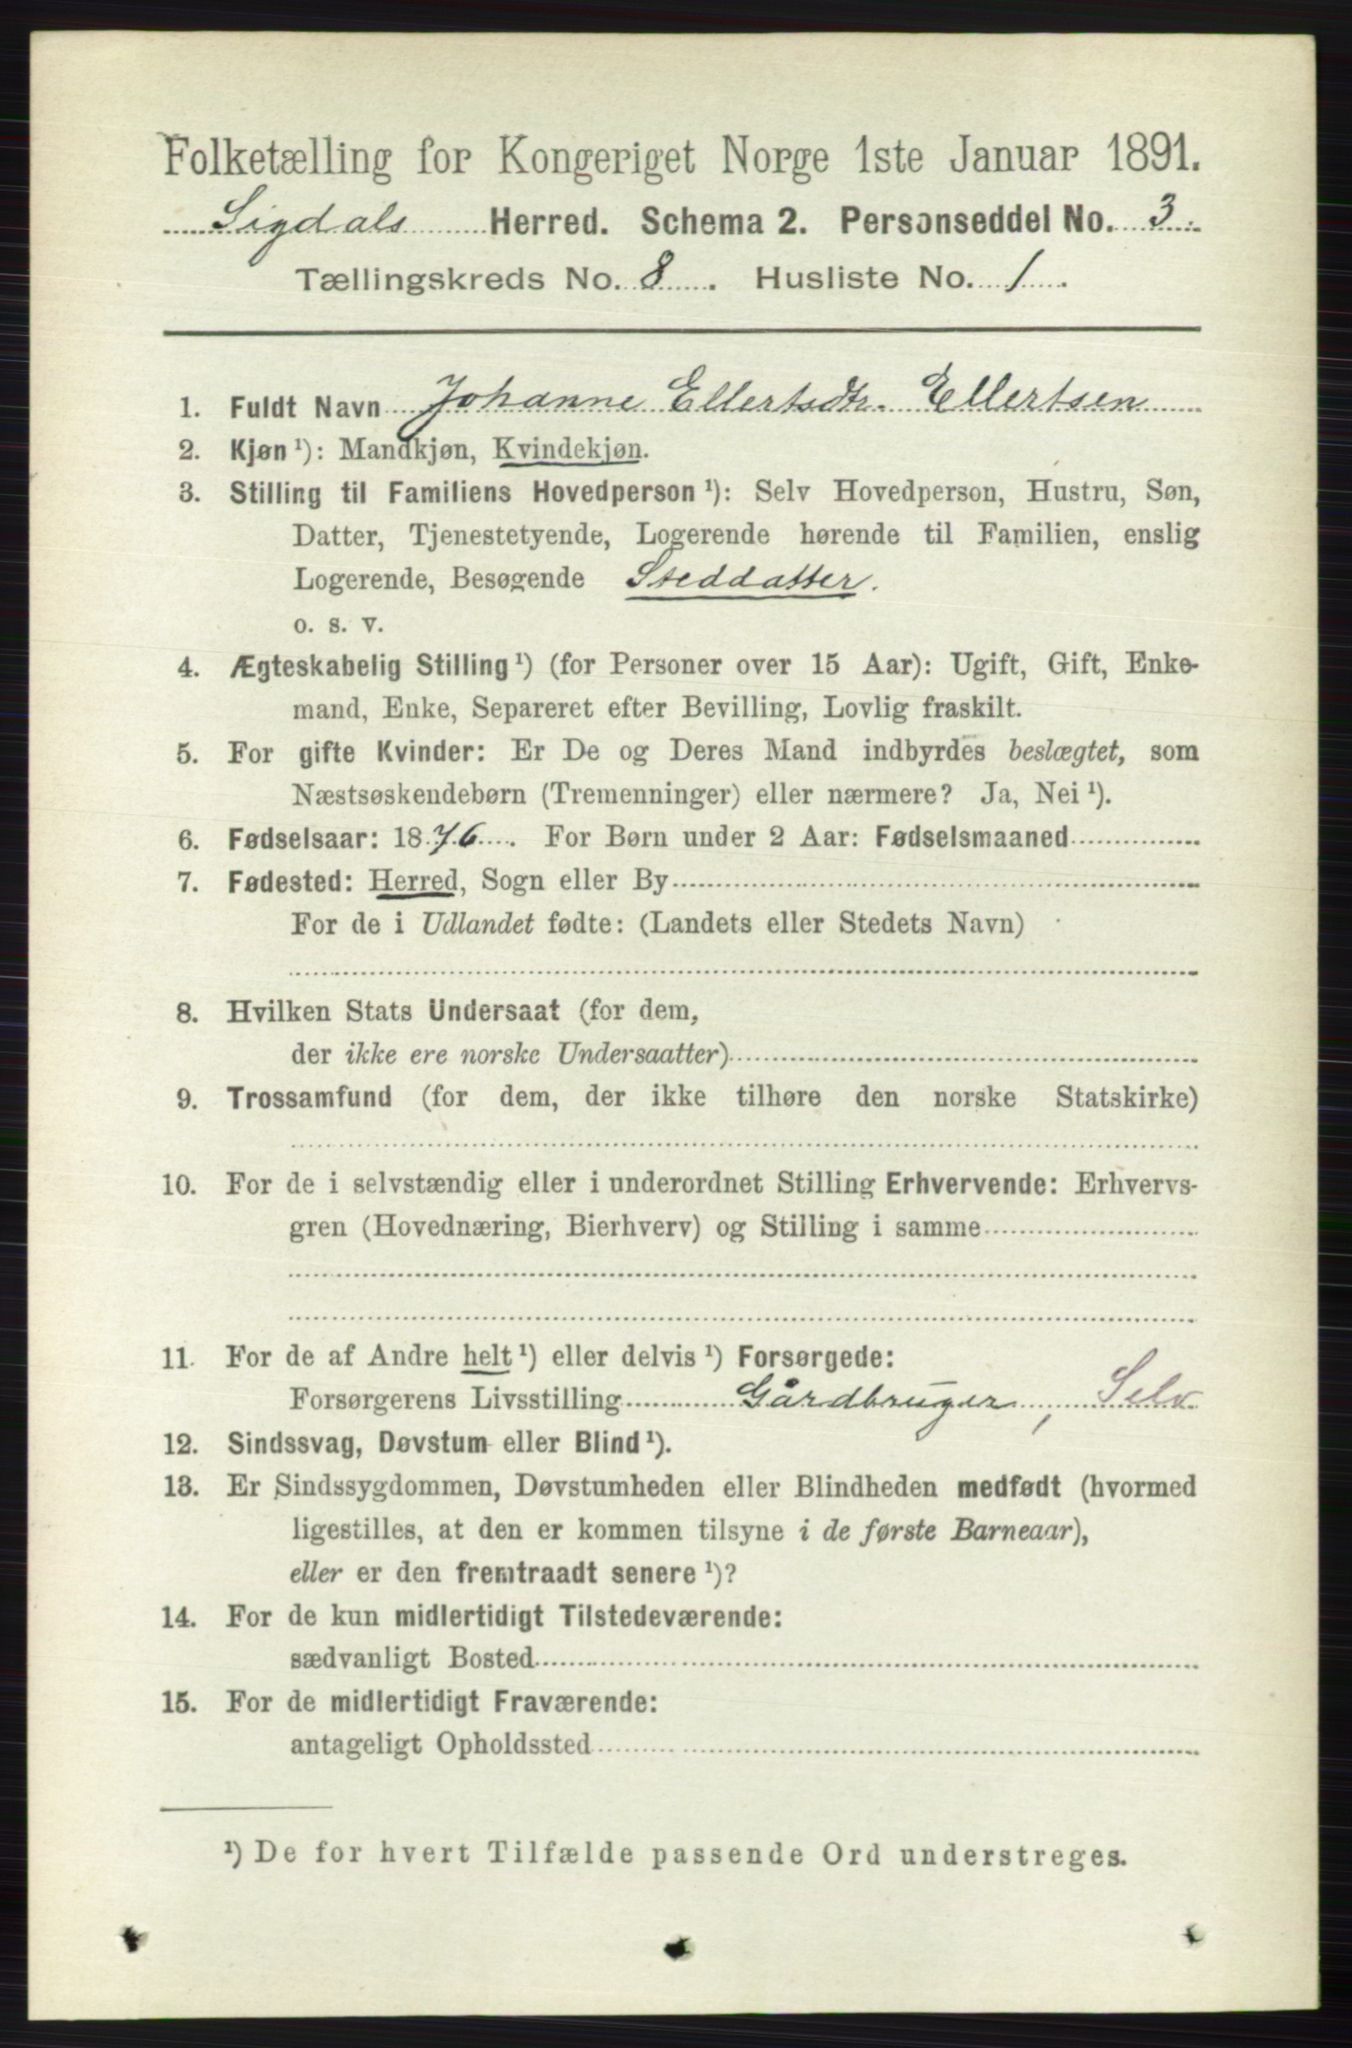 Folketælling for Kongeriget Norge 1ste Januar 1891.
Sigdals Herred. Schema 2. Personseddel No. 3.
Tællingskreds No. 8. Husliste No. 1.
1. Fuldt Navn Johanne Ellertsdtr. Ellertsen
2. Kjøn¹): Mandkjøn, Kvindekjøn.
3. Stilling til Familiens Hovedperson¹): Selv Hovedperson, Hustru, Søn,
Datter, Tjenestetyende, Logerende hørende til Familien, enslig
Logerende, Besøgende Steddatter.
o. s. v.
4. Ægteskabelig Stilling¹) (for Personer over 15 Aar): Ugift, Gift, Enke-
mand, Enke, Separeret efter Bevilling, Lovlig fraskilt.
5. For gifte Kvinder: Er De og Deres Mand indbyrdes beslægtet, som
Næstsøskendebørn (Tremenninger) eller nærmere? Ja, Nei¹).
6. Fødselsaar: 1876. For Børn under 2 Aar: Fødselsmaaned
7. Fødested: Herred, Sogn eller By
For de i Udlandet fødte: (Landets eller Stedets Navn)
8. Hvilken Stats Undersaat (for dem,
der ikke ere norske Undersaatter)
9. Trossamfund (for dem, der ikke tilhøre den norske Statskirke)
10. For de i selvstændig eller i underordnet Stilling Erhvervende: Erhvervs-
gren (Hovednæring, Bierhverv) og Stilling i samme
11. For de af Andre helt¹) eller delvis¹) Forsørgede:
Forsørgerens Livsstilling Gårdbruger, Selv
12. Sindssvag, Døvstum eller Blind¹).
13. Er Sindssygdommen, Døvstumheden eller Blindheden medfødt (hvormed
ligestilles, at den er kommen tilsyne i de første Barneaar),
eller er den fremtraadt senere¹)?
14. For de kun midlertidigt Tilstedeværende:
sædvanligt Bosted
15. For de midlertidigt Fraværende:
antageligt Opholdssted
¹) De for hvert Tilfælde passende Ord understreges.